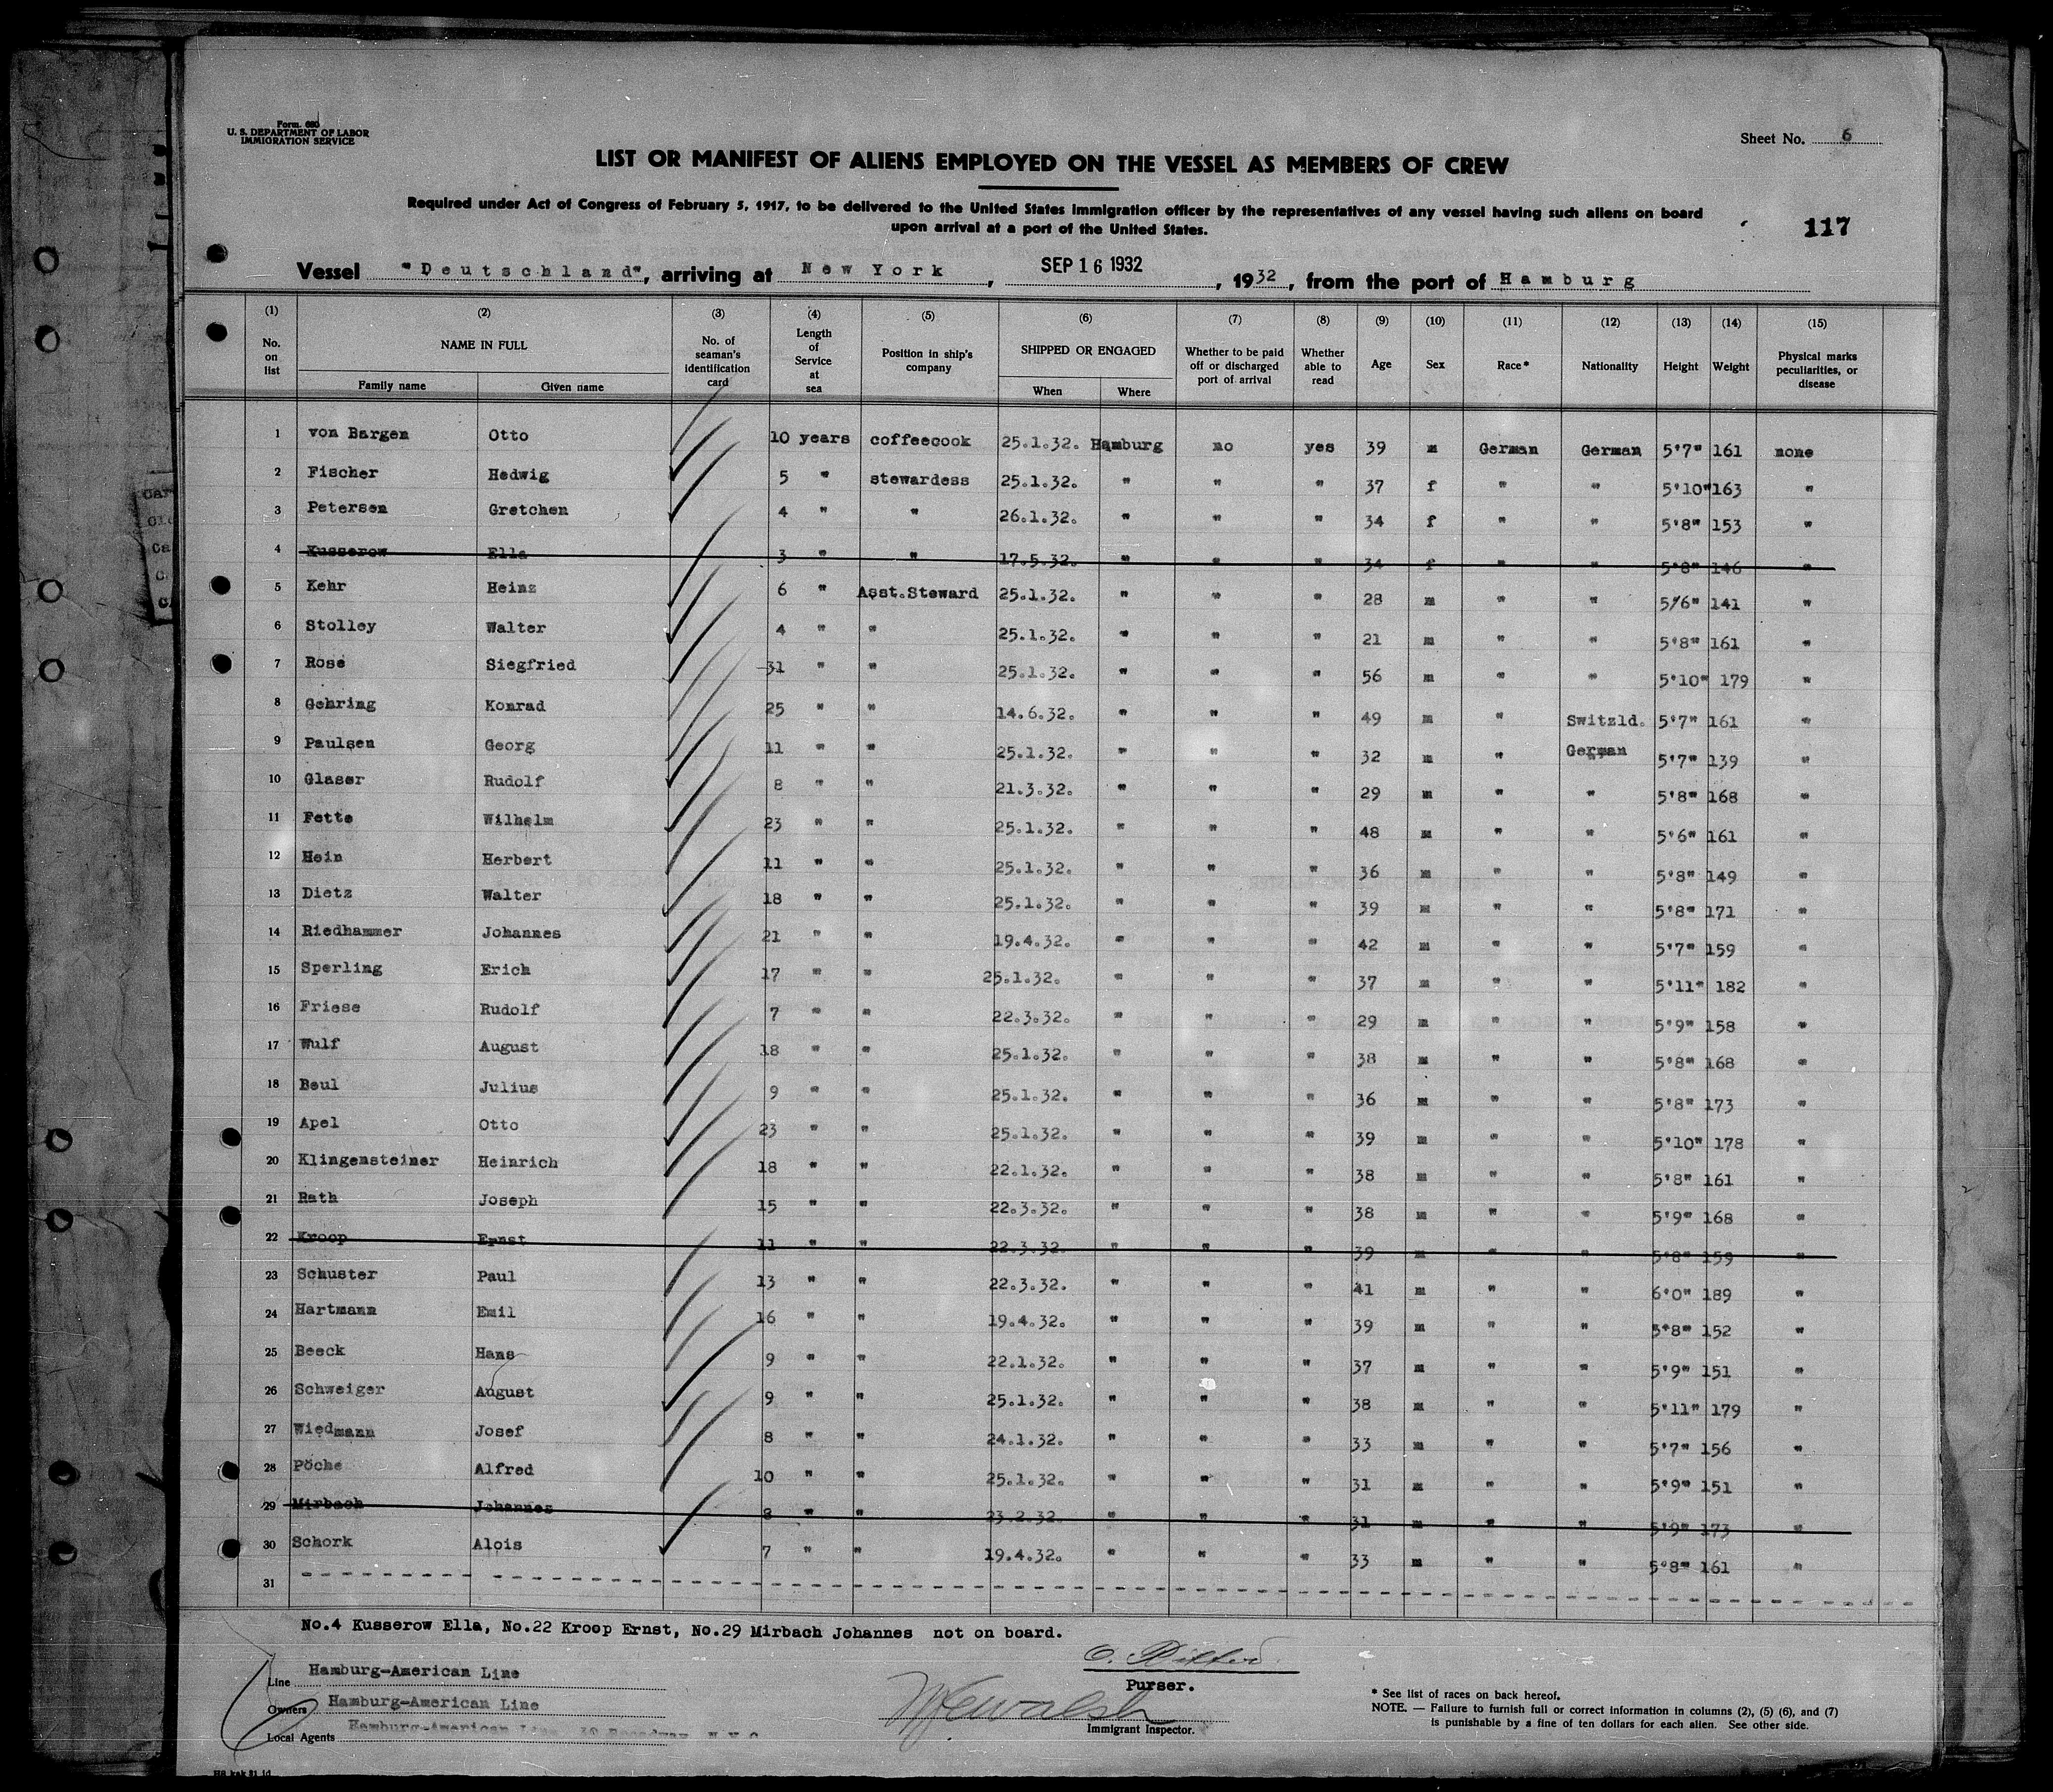 Form 680
U. S. DEPARTMENT OF LABOR
IMMIGRATION SERVICE
Sheet No. 6
LIST OR MANIFEST OF ALIENS EMPLOYED ON THE VESSEL AS MEMBERS OF CREW
Required under Act of Congress of February 5, 1917, to be delivered to the United States immigration officer by the representatives of any vessel having such aliens on board
upon arrival at a port of the United States.
117
Vessel "Deutschland", arriving at New York, SEP 16 1932, 1932, from the port of Hamburg
(1) (2) (3) (4) (5) (6) (7) (8) (9) (10) (11) (12) (13) (14) (15)
No. on list NAME IN FULL Family name Given name No. of seaman's identification card Length of Service at sea Position in ship's company SHIPPED OR ENGAGED When Where Whether to be paid off or discharged port of arrival Whether able to read Age Sex Race* Nationality Height Weight Physical marks peculiarities, or disease
1 von Bargen Otto 10 years coffeecook 25.1.32. Hamburg no yes 39 m German German 5'7" 161 none
2 Fischer Hedwig 5 " stewardess 25.1.32. " " " 37 f " " 5'10" 163 "
3 Petersen Gretchen 4 " " 26.1.32. " " " 34 f " " 5'8" 153 "
4 Kusserow Ella 3 " " 17.5.32. " " " 34 f " " 5'8" 146 "
5 Kehr Heinz 6 " Asst.Steward 25.1.32. " " " 28 m " " 5/6" 141 "
6 Stolley Walter 4 " " 25.1.32. " " " 21 m " " 5'8" 161 "
7 Rose Siegfried 31 " " 25.1.32. " " " 56 m " " 5'10" 179 "
8 Gehring Konrad 25 " " 14.6.32. " " " 49 m " Switzld. 5'7" 161 "
9 Paulsen Georg 11 " " 25.1.32. " " " 32 m " German 5'7" 139 "
10 Glaser Rudolf 8 " " 21.3.32. " " " 29 m " " 5'8" 168 "
11 Fette Wilhelm 23 " " 25.1.32. " " " 48 m " " 5'6" 161 "
12 Hein Herbert 11 " " 25.1.32. " " " 36 m " " 5'8" 149 "
13 Dietz Walter 18 " " 25.1.32. " " " 39 m " " 5'8" 171 "
14 Riedhammer Johannes 21 " " 19.4.32. " " " 42 m " " 5'7" 159 "
15 Sperling Erich 17 " " 25.1.32. " " " 37 m " " 5'11" 182 "
16 Friese Rudolf 7 " " 22.3.32. " " " 29 m " " 5'9" 158 "
17 Wulf August 18 " " 25.1.32. " " " 38 m " " 5'8" 168 "
18 Beul Julius 9 " " 25.1.32. " " " 36 m " " 5'8" 173 "
19 Apel Otto 23 " " 25.1.32. " " " 39 m " " 5'10" 178 "
20 Klingensteiner Heinrich 18 " " 22.1.32. " " " 38 m " " 5'8" 161 "
21 Rath Joseph 15 " " 22.3.32. " " " 38 m " " 5'9" 168 "
22 Kroop Ernst 11 " " 22.3.32. " " " 39 m " " 5'8" 159 "
23 Schuster Paul 13 " " 22.3.32. " " " 41 m " " 6'0" 189 "
24 Hartmann Emil 16 " " 19.4.32. " " " 39 m " " 5'8" 152 "
25 Beeck Hans 9 " " 22.1.32. " " " 37 m " " 5'9" 151 "
26 Schweiger August 9 " " 25.1.32. " " " 38 m " " 5'11" 179 "
27 Wiedmann Josef 8 " " 24.1.32. " " " 33 m " " 5'7" 156 "
28 Pöche Alfred 10 " " 25.1.32. " " " 31 m " " 5'9" 151 "
29 Mirbach Johannes 8 " " 23.2.32. " " " 31 m " " 5'9" 173 "
30 Schork Alois 7 " " 19.4.32. " " " 33 m " " 5'8" 161 "
31
No.4 Kusserow Ella, No.22 Kroop Ernst, No.29 Mirbach Johannes not on board.
Line Hamburg-American Line
Owners Hamburg-American Line
Local Agents Hamburg-American Line, Broadway, N.Y.C
Purser.
Immigrant Inspector.
* See list of races on back hereof.
NOTE. — Failure to furnish full or correct information in columns (2), (5) (6), and (7)
is punishable by a fine of ten dollars for each alien. See other side.